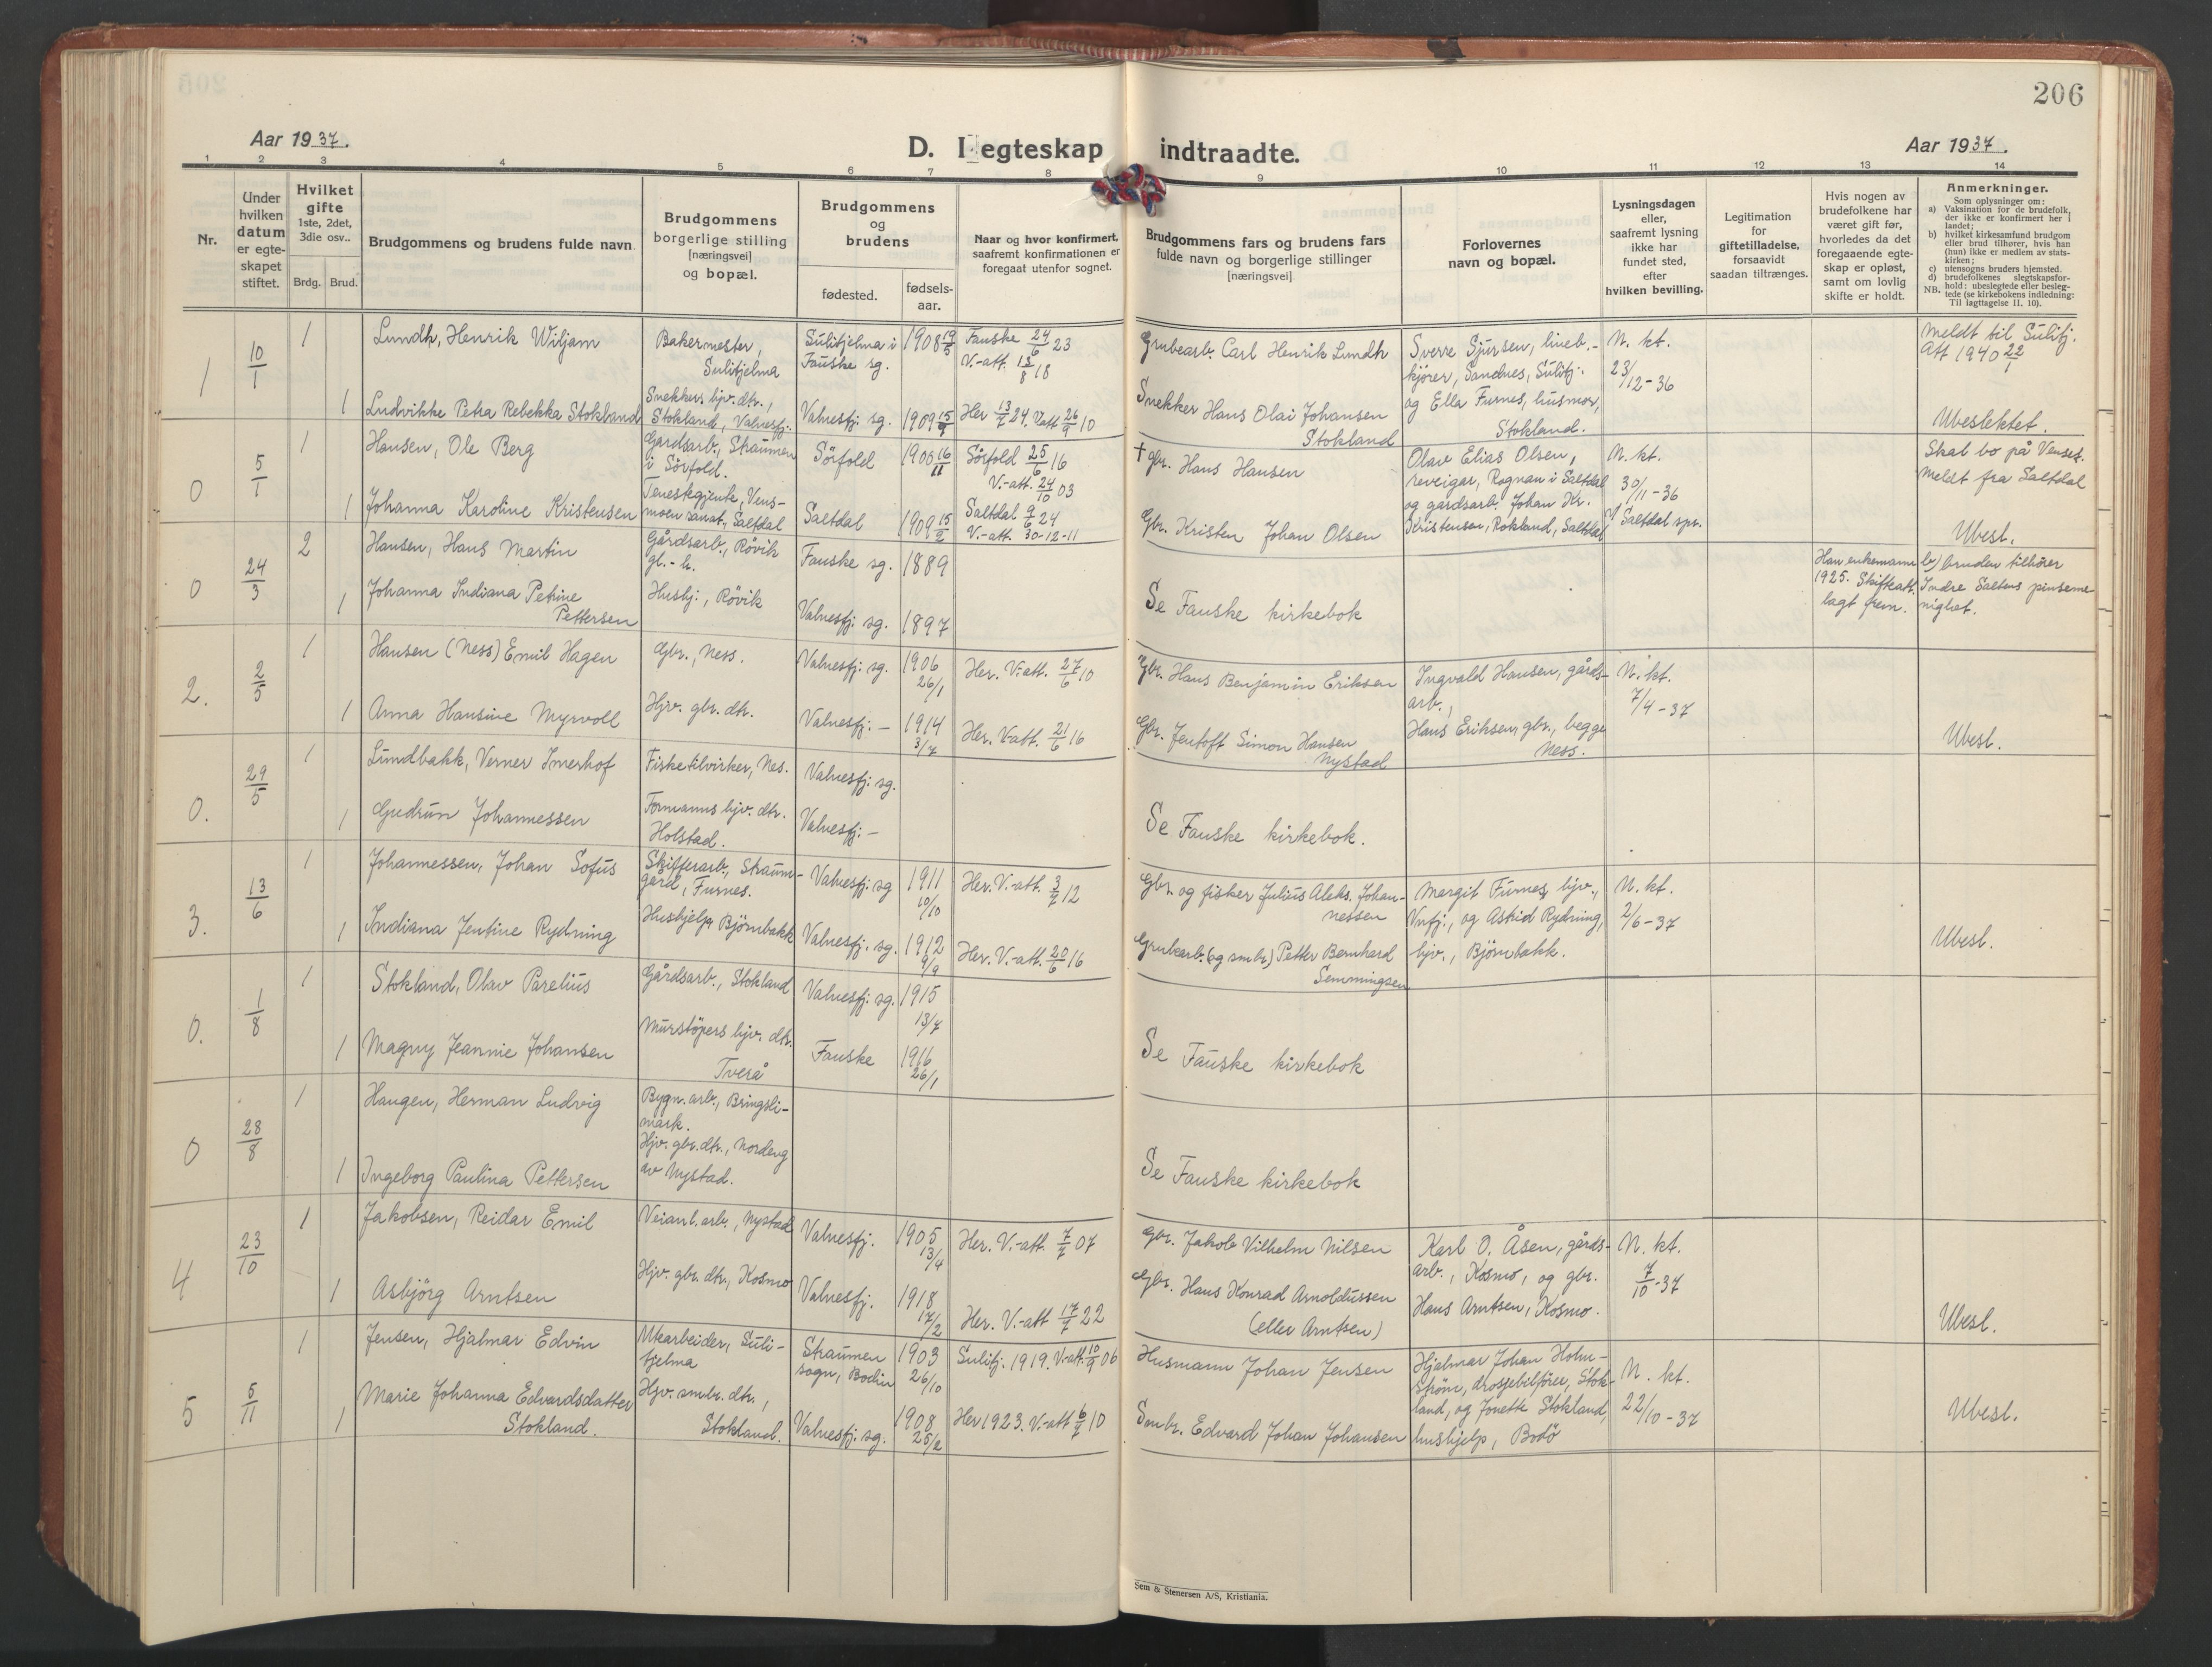 206
Aar 1937.
D. I egteskap indtraadte.
Aar 1937.
1 2 3 4 5 6 7 8 9 10 11 12 13 14
Nr.
Under hvilken datum er egteskapet stiftet.
Hvilket gifte 1ste, 2det, 3die osv..
Brdg. Brud.
Brudgommens og brudens fulde navn
Brudgommens borgerlige stilling [næringsvei] og bopæl.
Brudgommens og brudens
fødested.
fødsels-aar.
Naar og hvor konfirmert, saafremt konfirmationen er foregaat utenfor sognet.
Brudgommens fars og brudens fars fulde navn og borgerlige stillinger [næringsvei]
Forlovernes navn og bopæl.
Lysningsdagen eller, saafremt lysning ikke har fundet sted, efter hvilken bevilling.
Legitimation for giftetilladelse, forsaavidt saadan tiltrænges.
Hvis nogen av brudefolkene har været gift før, hvorledes da det foregaaende egteskap er opløst, samt om lovlig skifte er holdt.
Anmerkninger.
Som oplysninger om:
a) Vaksination for de brudefolk, der ikke er konfirmert her i landet;
b) hvilket kirkesamfund brudgom eller brud tilhører, hvis han (hun) ikke er medlem av statskirken;
c) utensogns bruders hjemsted.
d) brudefolkenes slegtskapsforhold: ubeslegtede eller beslegtede (se kirkebokens indledning:
NB. Til iagttagelse II. 10).
1 10/1 1 Lundh, Henrik Wiljam Bakermester, Sulitjelma Sulitjelma i Fauske sg. 1908 19/5 Fauske 24/6 23 V.-att. 13/8 18 Grubearb. Carl Henrik Lundh Sverre Sjursen, lineb.-kjører, Sandnes, Sulitj. og Ella Furnes, husmor, Stokland. N. kt. 23/12-36 Meldt til Sulitj. Att 1940 22/1
1 Ludvikke Petra Rebekka Stokland Snekkers hjv. dtr., Stokland, Valnesfj. Valnesfj. sg. 1909 15/9 Her 13/7 24. V.att 26/9 10 Snekker Hans Olai Johansen Stokland Ubeslektet.
0 5/1 1 Hansen, Ole Berg Gårdsarb., Straumen i Sørfold. Sörfold 1900 16/11 Sörfold 25/6 16 V.-att. 24/10 03 † Gbr. Hans Hansen Olav Elias Olsen, reveigar, Rognan i Saltdal og gårdsarb. Johan Kr. Kristensen, Rokland, Saltdal N. kt. 30/11-36 Saltdal spr. Skal bo på Venset. Meldt fra Saltdal
1 Johanna Karoline Kristensen Teneskgjente, Vensmoen sanat., Saltdal Saltdal 1909 15/2 Saltdal 9/6 24 V.-att. 30-12-11 Gbr. Kristen Johan Olsen Ubesl.
0 24/3 2 Hansen, Hans Martin Gårdsarb., Røvik gl.-h. Fauske sg. 1889 Han enkemann 1925. Skifteatt. lagt frem. b) bruden tilhører Indre Saltens pinsemenighet.
1 Johanna Indiana Petrine Pettersen Hushj., Røvik Valnesfj. sg. 1897 Se Fauske kirkebok
2. 2/5 1 Hansen (Ness) Emil Hagen Gbr., Ness. Valnesfj. sg. 1906 26/1 Her. V.att. 27/6 10 Gbr. Hans Benjamin Eriksen Ingvald Hansen, gårdsarb., Hans Eriksen, gbr., begge Ness. N. kt. 7/4-37
1 Anna Hansine Myrvoll Hjv. gbr. dtr. Valnesfj. – 1914 3/7 Her. V.att. 21/6 16 Gbr. Jentoft Simon Hansen Nystad Ubesl.
0. 29/5 1 Lundbakk, Verner Imerhof Fisketilvirker, Nes. Valnesfj. sg.
1 Gudrun Johannessen Formanns hjv. dtr. Holstad. Valnesfj. – Se Fauske kirkebok.
3. 13/6 1 Johannessen, Johan Sofus Skifferarb., Straumgård, Furnes. Valnesfj. sg 1911 10/10 Her. V.-att. 3/7 12 Gbr. og fisker Julius Aleks. Johannessen Margit Furnes, hjv., Vnfj., og Astrid Rydning, hjv., Björnbakk. N. kt. 2/6-37
1 Indiana Jentine Rydning Hushjelp, Björnbakk Valnesfj. sg. 1912 9/9 Her. V.-att. 20/6 16 Grubearb. (og smbr) Petter Bernhard Semmingsen Ubesl.
0. 1/8 1 Stokland, Olav Parelius Gårdsarb., Stokland Valnesfj. sg. 1915 13/7
1 Magny Jeannie Johansen Murstöpers hjv. dtr. Tverå Fauske 1916 26/1 Se Fauske kirkebok
0 28/8 1 Haugen, Herman Ludvig Bygn. arb., Bringslimark.
1 Ingeborg Paulina Pettersen Hjv. gbr. dtr., Nordeng av Nystad. Se Fauske kirkebok
4 23/10 1 Jakobsen, Reidar Emil Veianl. arb., Nystad Valnesfj. 1905 13/4 Her. V.-att. 7/7 07 Gbr. Jakob Vilhelm Nilsen Karl O. Åsen, gårdsarb., Kosmo, og gbr. Hans Arntsen, Kosmo. N. kt. 7/10-37
1 Asbjörg Arntsen Hjv. gbr. dtr., Kosmo Valnesfj. 1918 17/2 Her. V.-att 17/7 22 Gbr. Hans Konrad Arnoldussen (eller Arntsen) Ubesl.
5 5/11 1 Jensen, Hjalmar Edvin Utearbeider, Sulitjelma Straumen sogn, Bodin 1903 26/10 Sulitj. 1919. V-att. 10/9 06 Husmann Johan Jensen Hjalmar Johan Holmström, drosjebilförer, Stokland, og Jonette Stokland, hushjelp, Bodö N. kt. 22/10-37
1 Marie Johanna Edvardsdatter Stokland. Hjv. smbr. dtr., Stokland. Valnesfj. sg. 1908 25/2 Her 1923. V.-att 6/7 10 Smbr. Edvard Johan Johansen Ubesl.
Sem & Stenersen A/S, Kristiania.